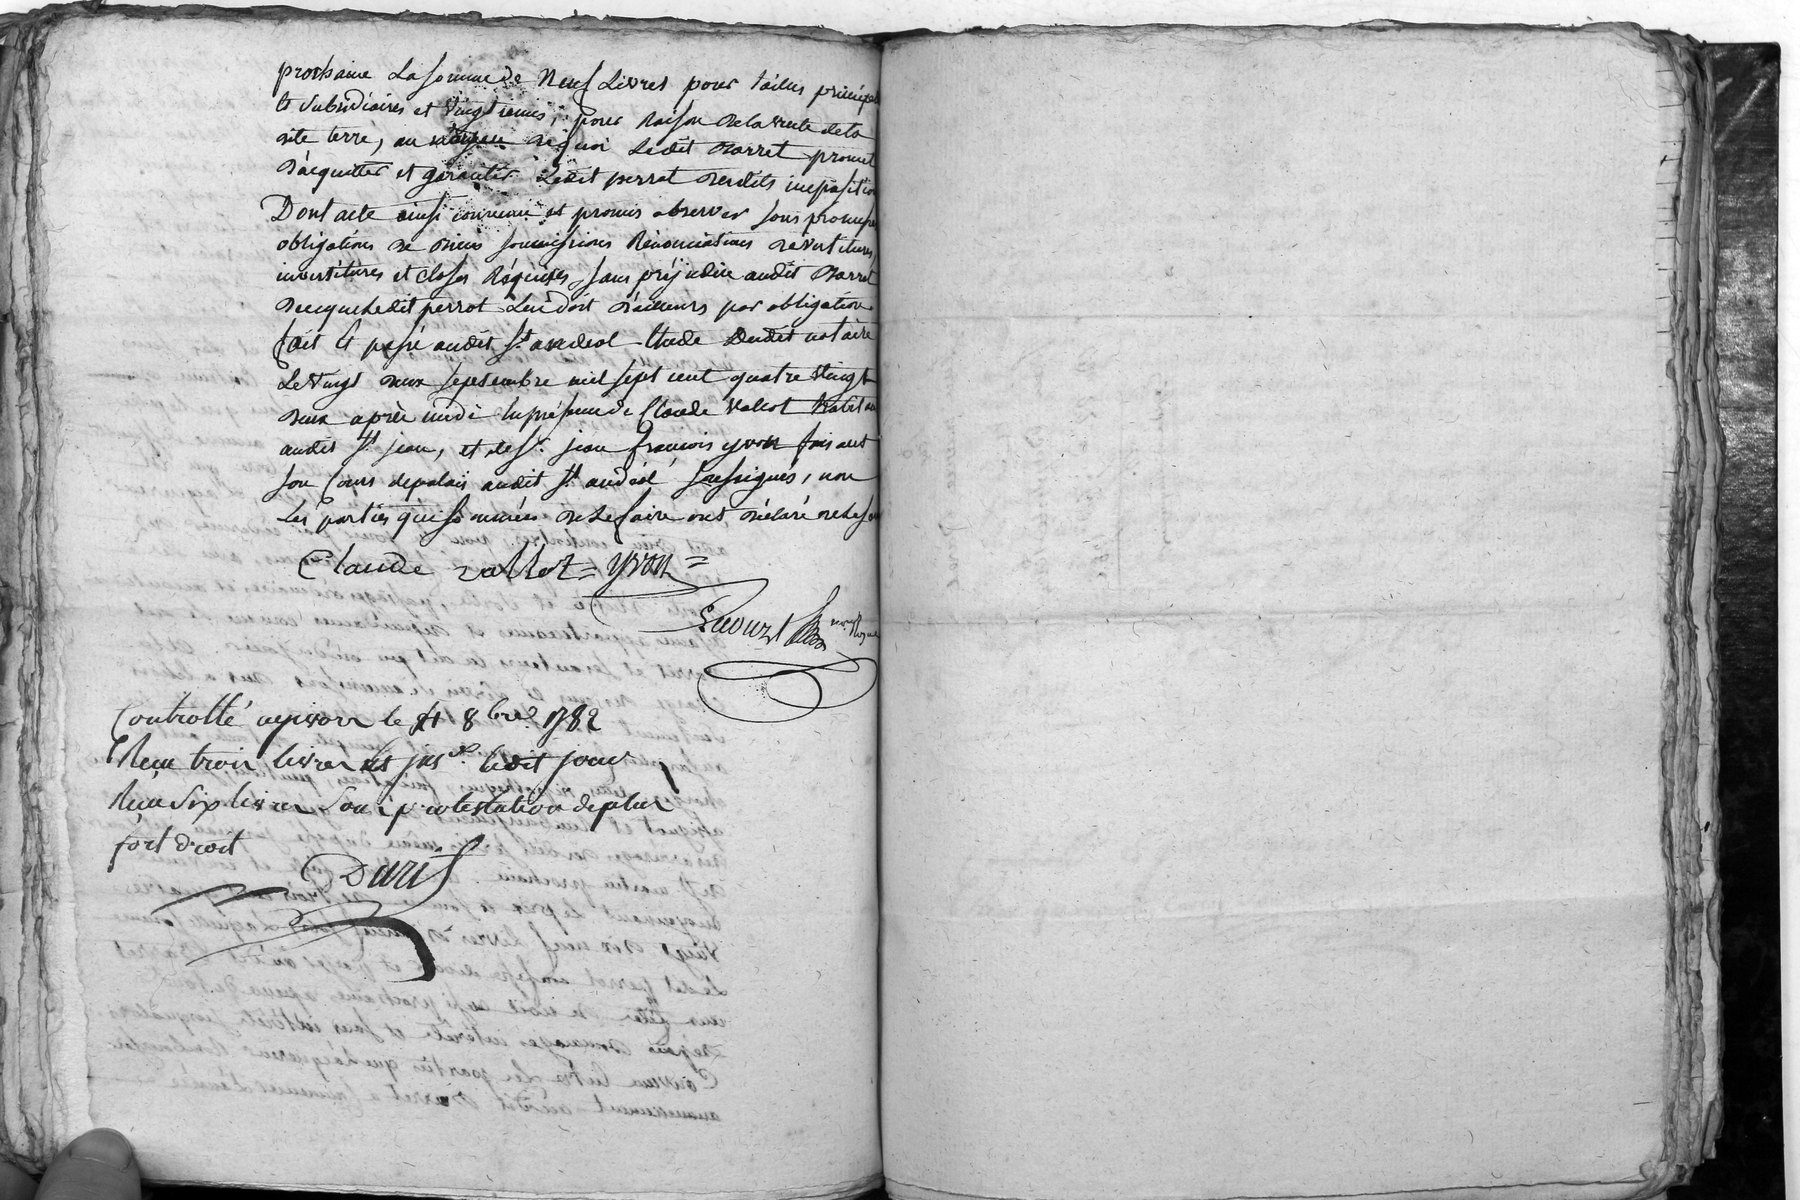 prochaine La somme de Neuf Livres pour tailles principal
et subsidiaires et vingtiemes, pour Raison de la vente de la
dite terre, au moyen dequoi Ledit Barret promet
d'acquitter et garantir Ledit perrot desdits impositions
Dont acte ainsi convenu et promis observer sous promesses
obligations de biens soumissions Renonciations dévestitures,
investitures et closes Réquises, sans préjudice audit Barret
de ceque Ledit perrot Lui doit d'ailleurs par obligation.
fait et passé audit St andeol Etude dudit notaire
Le vingt deux septembre mil sept cent quatre vingt
deux après midi En présence de Claude vallot habitant
audit St jean, et de Sr. jean françois yvon faisant
son Cours depalais audit St andéol soussignés, non
Les parties qui sommées de le faire ont déclaré ne le savoir
Claude vallot = yvon =
Controllé a le 4 8bre 1782
Reçu trois livres et ins.é ledit jour
Reçu six livres sous protestation de plus
fort droit